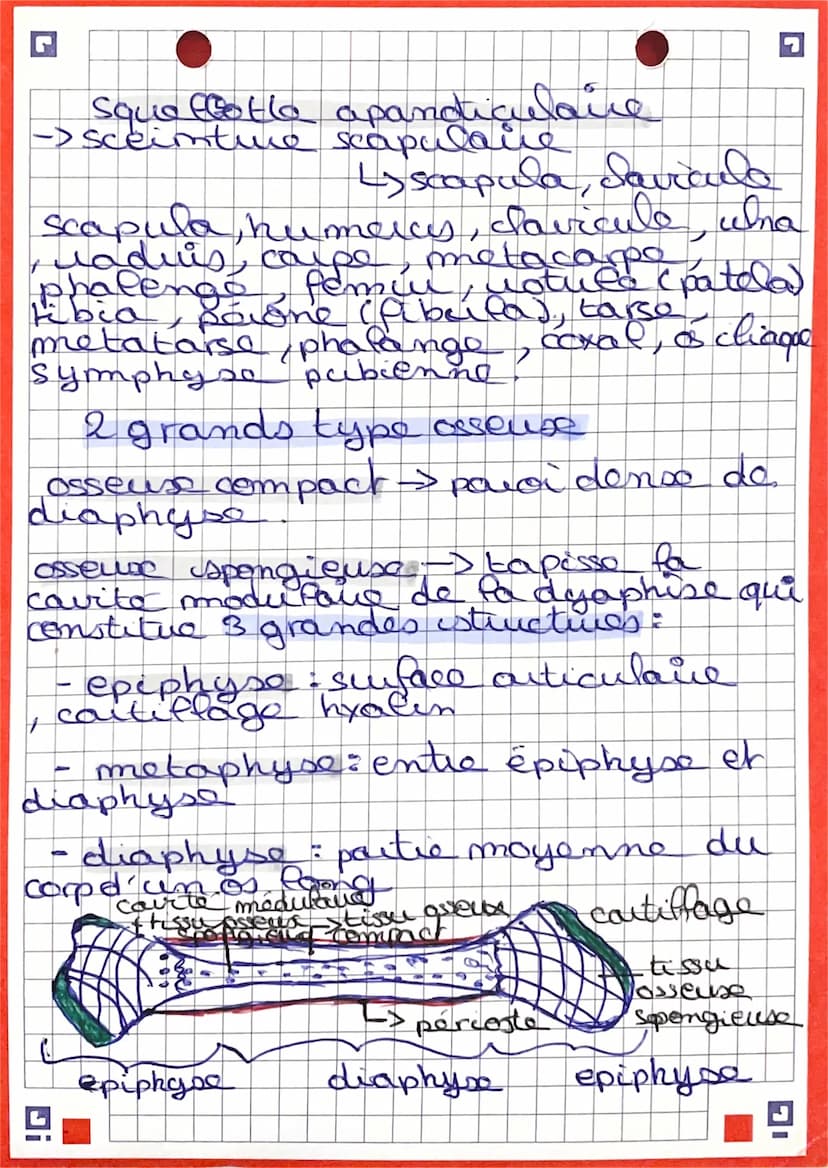 squellette apandiculaire
-> sceinture scapulaire
↳ scapula, clavicule
scapula, humerus, clavicule, ulna
, raduis, carpe, metacarpe,
phalenge, fémur, rotule (patela)
tibia, péroné (fibula), tarse,
metatarse, phalange, coxal, os iliaque
symphyse pubienne.
2 grands type osseuse
osseux compact -> paroi dense de
diaphyse.
osseux spongieuse -> tapisse la
cavité modulaire de la dyaphise qui
constitue 3 grandes structures :
- epiphyse : surface articulaire
, cartillage hyalin
- metaphyse : entre épiphyse et
diaphyse
- diaphyse : partie moyenne du
corp d'un os long
cavité médulaire
tissu osseux spongieux
tissu osseux compact
cartillage
tissu
osseuse
spongieuse
↳ périoste
epiphyse diaphyse epiphyse